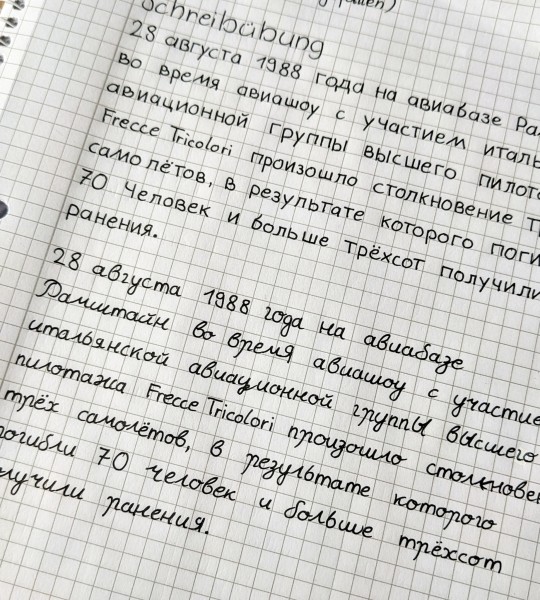 Schreibübung
28 августа 1988 года на авиабазе
во время авиашоу с участием
авиационной группы высшего
Frecce Tricolori произошло столкновение
самолётов, в результате которого
70 Человек и больше трёхсот получили
ранения.
28 августа 1988 года на авиабазе
Рамштайн во время авиашоу с
итальянской авиационной группы высшего
пилотажа Frecce Tricolori произошло
трёх самолётов, в результате которого
погибли 70 человек и больше трёхсот
ранения.